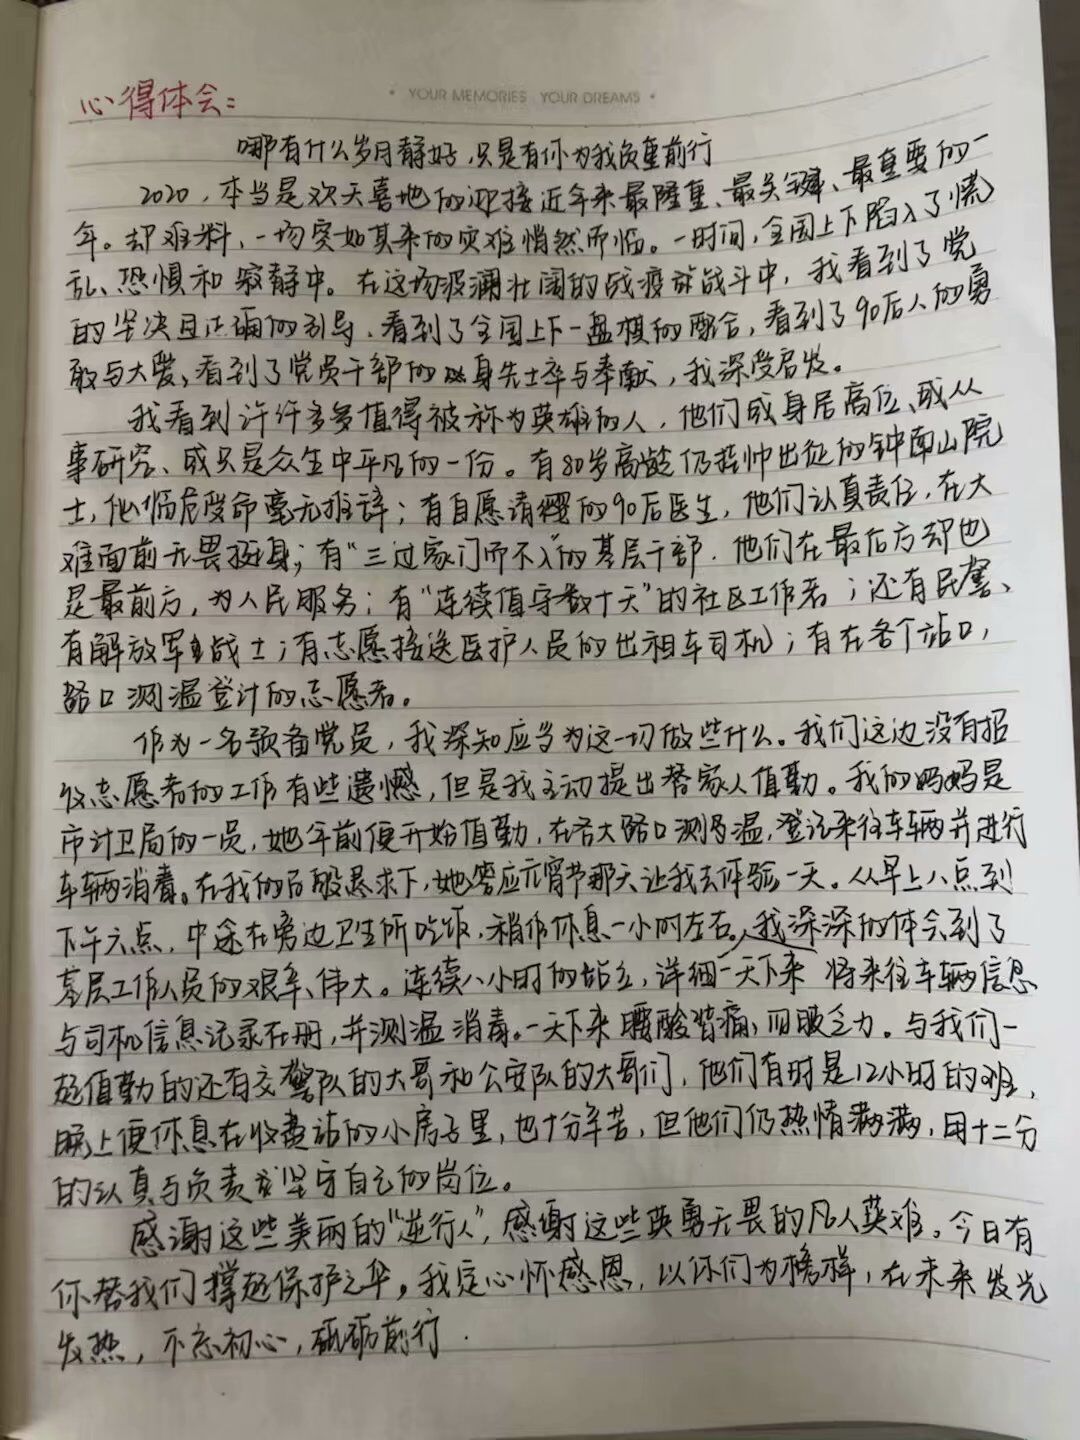 YOUR MEMORIES YOUR DREAMS
心得体会:
哪有什么岁月静好,只是有你为我负重前行
2020,本当是欢天喜地的迎接近年来最隆重、最关键、最重要的一
年。却难料,一场突如其来的灾难悄然而临。一时间,全国上下陷入了慌
乱、恐惧和寂静中。在这场波澜壮阔的战疫战斗中,我看到了党
的坚决且正确的引导、看到了全国上下一盘棋的配合,看到了90后人的勇
敢与大爱、看到了党员干部的身先士卒与奉献,我深受启发。
我看到许许多多值得被称为英雄的人,他们或身居高位、或从
事研究、或只是众生中平凡的一份。有80岁高龄仍挂帅出征的钟南山院
士,他临危受命毫无推辞;有自愿请缨的90后医生,他们认真责任,在大
难面前无畏挺身;有“三过家门而不入”的基层干部.他们在最后方却也
是最前方,为人民服务;有“连续值守数十天”的社区工作者;还有民警、
有解放军战士;有志愿接送医护人员的出租车司机;有在各个站口,
路口测温登计的志愿者。
作为一名预备党员,我深知应当为这一切做些什么。我们这边没有招
收志愿者的工作有些遗憾,但是我主动提出替家人值勤。我的妈妈是
市计卫局的一员,她年前便开始值勤,在各大路口测量温,登记来往车辆并进行
车辆消毒。在我的百般恳求下,她答应元宵节那天让我去体验一天。从早上八点到
下午六点,中途在旁边卫生所吃饭,稍作休息一小时左右。我深深的体会到了
基层工作人员的艰辛、伟大。连续八小时的站立,详细一天下来 将来往车辆信息
与司机信息记录在册,并测温消毒。一天下来腰酸背痛,四肢乏力。与我们一
起值勤的还有交警队的大哥和公安队的大哥们,他们有时是12小时的班,
晚上便休息在收费站的小房子里,也十分辛苦,但他们仍热情满满,用十二分
的认真与负责坚守自己的岗位。
感谢这些美丽的“逆行人”,感谢这些英勇无畏的凡人英雄。今日有
你替我们撑起保护之伞。我定心怀感恩,以你们为榜样,在未来发光
发热,不忘初心,砥砺前行.